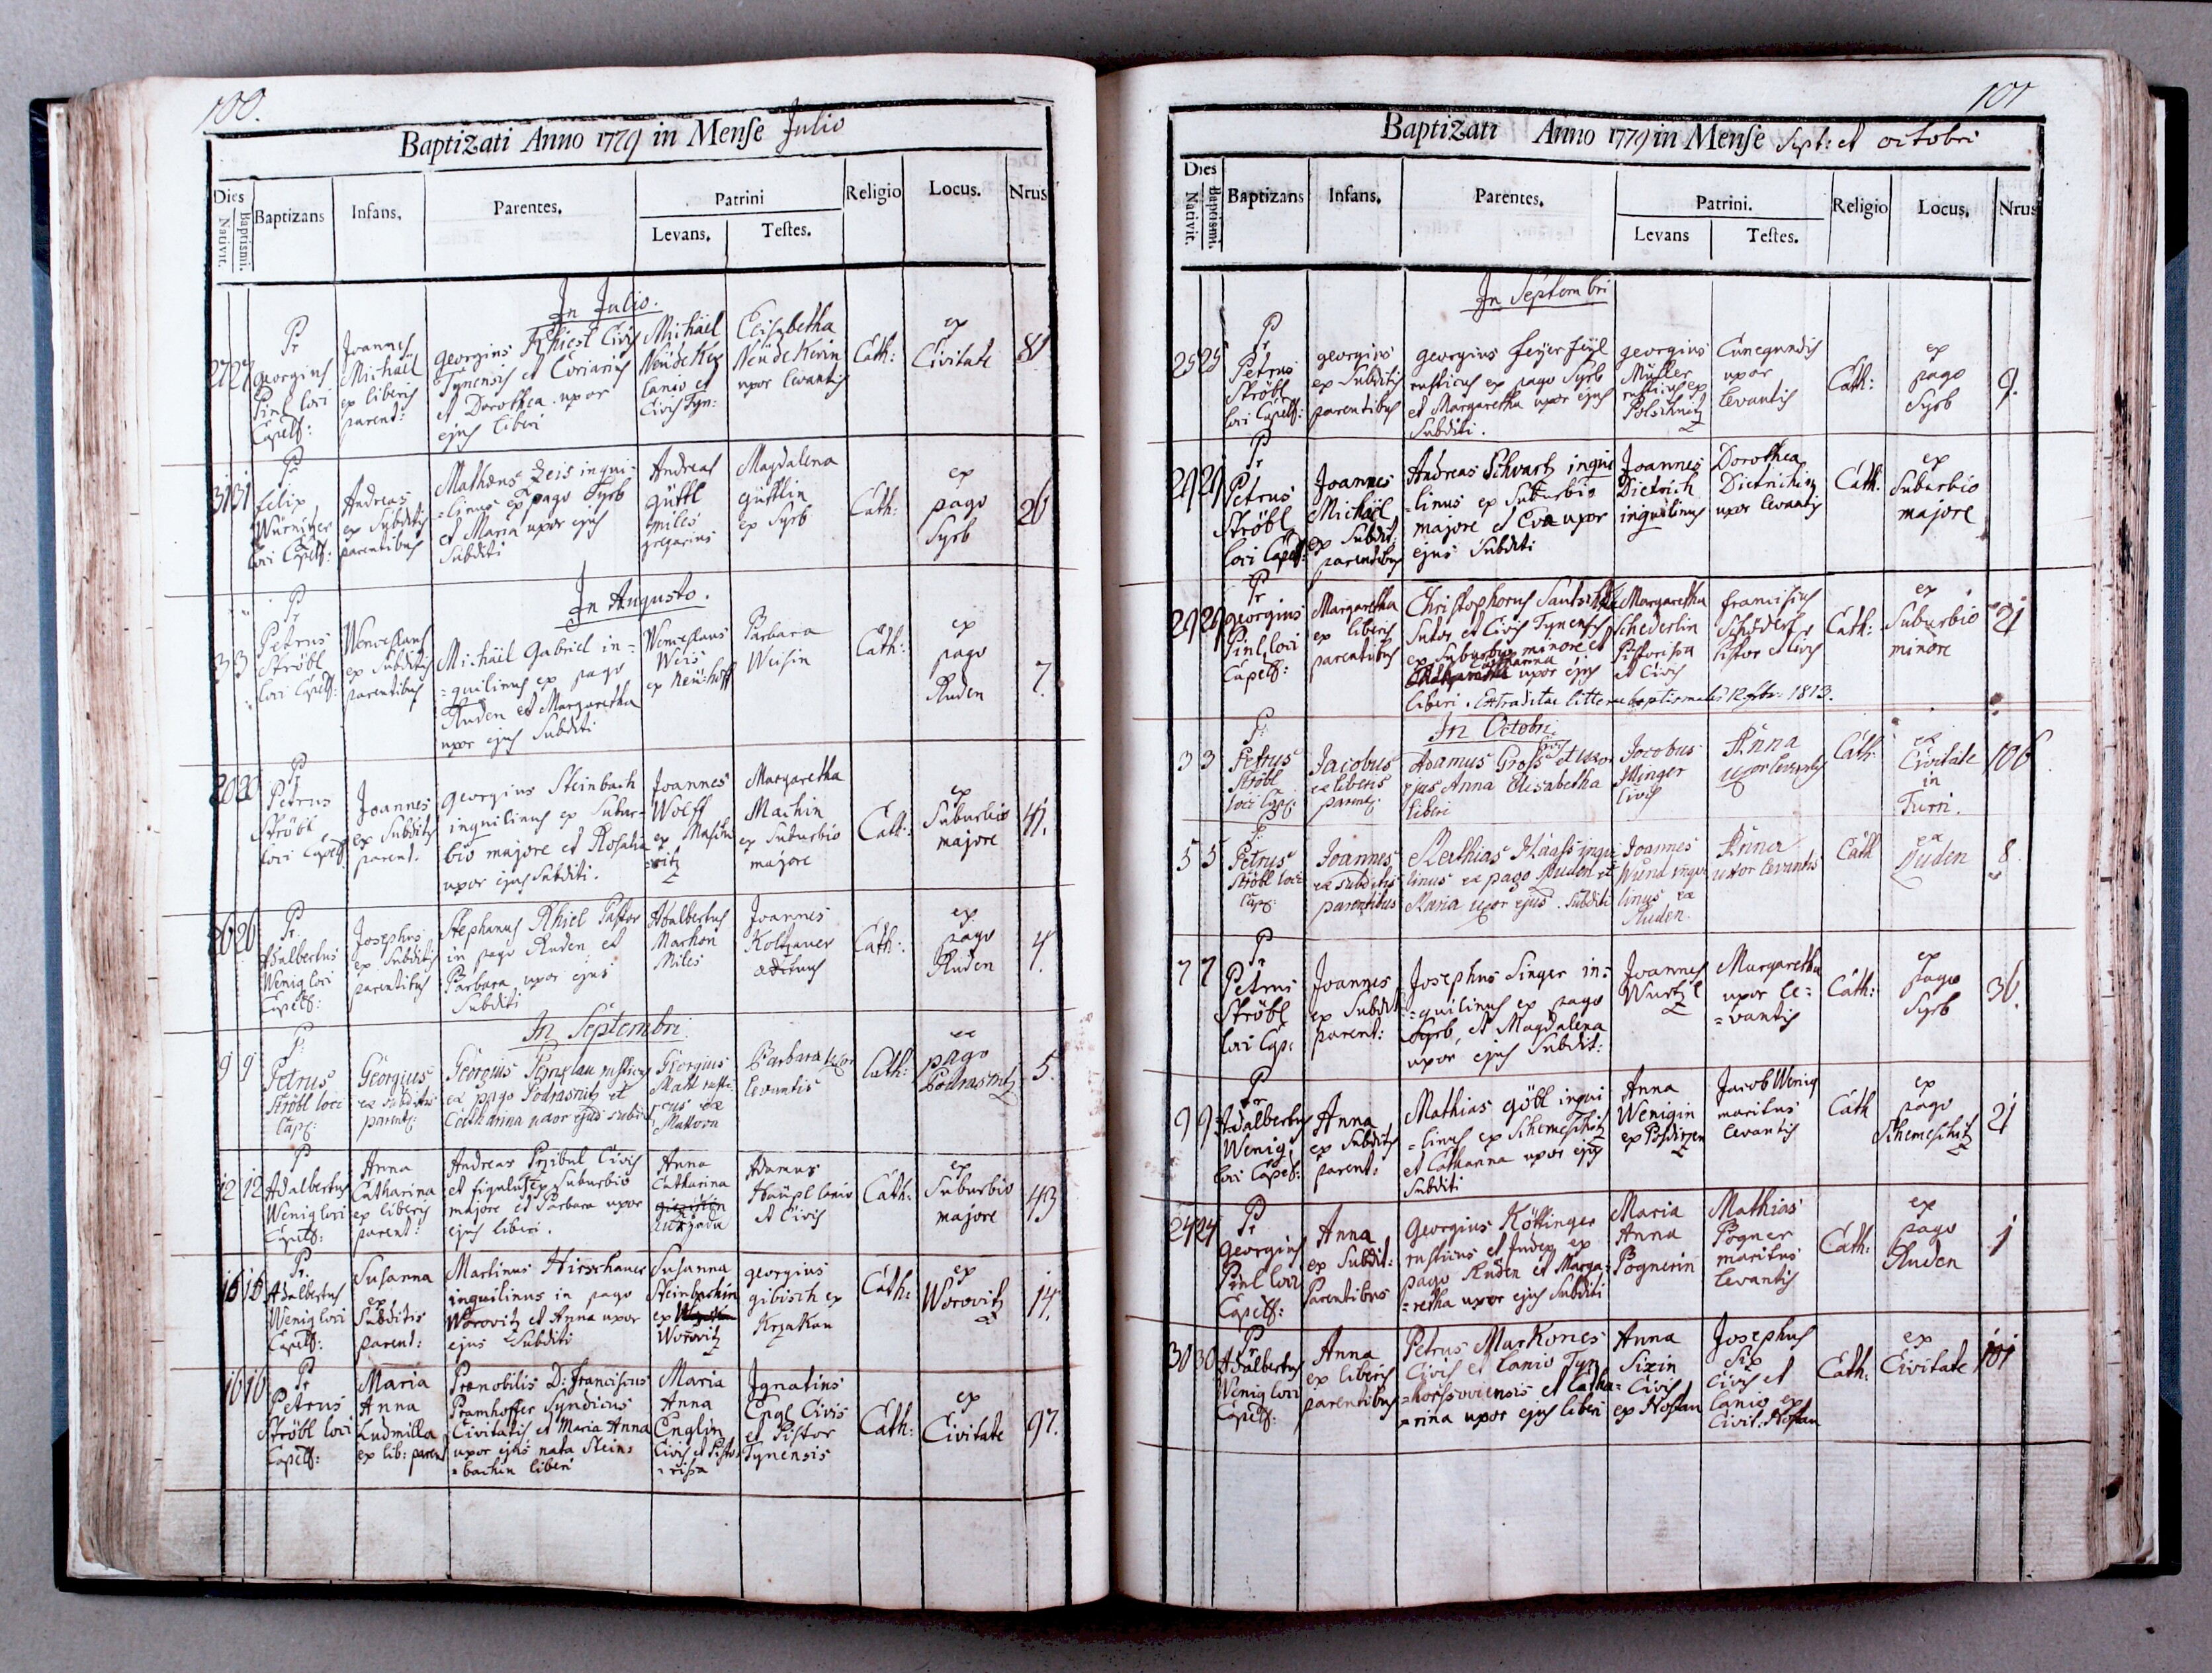 100.
Baptizati Anno 1779 in Mense Julio
Dies
Nativit.
Baptismi.
Baptizans
Infans.
Parentes.
Patrini
Levans.
Testes.
Religio
Locus.
Nrus
In Julio.
27 27
Pr
Georgius
Pinl loci
Capell:
Joannes
Michäel
ex liberis
parent:
Georgius Civis
Tynensis et Coriarius
et Dorothea uxor
ejus liberi
Michäel
lanio et
Civis Tyn:
Elisabetha
uxor levantis
Cath:
ex
Civitate
81
31 31
Pr
Felix
Würnitzer
loci Capell:
Andreas
ex Subditis
parentibus
Mathæus Zeis inqui-
=linus ex pago Syrb
et Maria uxor ejus
Subditi
Andreas
Güttl
miles
gregarius
Magdalena
Güttlin
ex Syrb
Cath:
ex
pago
Syrb
26
In Augusto.
3 3
Pr
Petrus
Ströbl
loci Capell:
Wenceslaus
ex Subditis
parentibus
Michäel Gabriel in=
=quilinus ex pago
Ruden et Margaretha
uxor ejus Subditi
Wenceslaus
Weis
ex Neü=hoff
Barbara
Weisin
Cath:
ex
pago
Ruden
7.
20 20
Pr
Petrus
Ströbl
loci Capell
Joannes
ex Subditis
parent.
Georgius Steinbach
inquilinus ex Subur-
bio majore et Rosalia
uxor ejus Subditi.
Joannes
Wolff
ex
Margaretha
Machin
ex Suburbio
majore
Cath:
ex
Suburbio
majore
41.
26 26
Pr.
Adalbertus
Wenig loci
Capell:
Josephus
ex Subditis
parentibus
Stephanus Rhiel Pastor
in pago Ruden et
Barbara uxor ejus
Subditi
Adalbertus
Markon
Miles
Joannes
ædituus
Cath:
ex
pago
Ruden
4.
In Septembri.
9 9
P:
Petrus
Ströbl loci
Cap:
Georgius
ex subditis
parent:
Georgius rusticus
ex pago Podrasnitz et
Catharina uxor ejus subditi
Georgius
rusti-
cus ex
Barbara uxor
levantis
Cath:
ex
pago
Podrasnitz
5.
12 12
P
Adalbertus
Wenig loci
Capell:
Anna
Catharina
ex liberis
parent:
Andreas Przibul Civis
et figulus ex Suburbio
majore et Barbara uxor
ejus liberi.
Anna
Catharina
Adamus
Haüpl lanio
et Civis
Cath:
ex
Suburbio
majore
43
16 16
Pr.
Adalbertus
Wenig loci
Capell:
Susanna
ex
Subditis
parent:
Martinus Hirschauer
inquilinus in pago
Worovitz et Anna uxor
ejus Subditi
Susanna
Steinbachin
ex
Worovitz
Georgius
Gibisch ex
Krzakau
Cath:
ex
Worovitz
14.
16 16
Pr
Petrus
Ströbl loci
Capell:
Maria
Anna
Ludmilla
ex lib: parent
Prænobilis D: Franciscus
Pramhoffer Syndicus
Civitatis et Maria Anna
uxor ejus nata Stein=
=bachin liberi
Maria
Anna
Englin
Civis et Pisto-
=rissa
Ignatius
Engl Civis
et Pistor
Tynensis
Cath:
ex
Civitate
97.
101
Baptizati Anno 1779 in Mense Sept: et octobri
Dies
Nativit.
Baptismi.
Baptizans
Infans.
Parentes.
Patrini.
Levans
Testes.
Religio
Locus.
Nrus
In Septembri
25 25
Pr
Petrus
Ströbl
loci Capell:
Georgius
ex Subditis
parentibus
Georgius Feyerfeyl
rusticus ex pago Syrb
et Margaretha uxor ejus
Subditi.
Georgius
Müller
rusticus ex
Polschnitz
Cunegundis
uxor
levantis
Cath:
ex
pago
Syrb
9.
29 29
Pr
Petrus
Ströbl
loci Capell:
Joannes
Michäel
ex Subdit:
parentibus
Andreas Schwartz inqui
=linus ex Suburbio
majore et Eva uxor
ejus Subditi
Joannes
Dietrich
inquilinus
Dorothea
Dietrichin
uxor levantis
Cath.
ex
Suburbio
majore
29 29
Pr
Georgius
Pinl loci
Capell:
Margaretha
ex liberis
parentibus
Christophorus
Sutor et Civis Tynensis
ex Suburbio minore et
uxor ejus
liberi. Extraditae litterae baptismales 12 1813.
Margaretha
Schederlin
Pistorissa
et Civis
Franciscus
Schöderl
Pistor et Civis
Cath:
ex
Suburbio
minore
21
In Octobri.
3 3
P:
Petrus
Ströbl
loci Cap:
Jacobus
ex liberis
parent:
Adamus Gross civis et uxor
ejus Anna Elisabetha
liberi
Jacobus
Illinger
Civis
Anna
uxor levantis
Cath:
ex
Civitate
in
Turri.
106
5 5
P:
Petrus
Ströbl loci
Cap:
Joannes
ex subditis
parentibus
Mathias Haass inqui
linus ex pago Ruden et
Maria uxor ejus. Subditi
Joannes
Wund inqui
linus ex
Ruden.
Anna
uxor levantis
Cath
ex
Ruden
8.
7 7
Pr
Petrus
Ströbl
loci Cap:
Joannes
ex Subdit:
parent:
Josephus Singer in=
=quilinus ex pago
Syrb, et Magdalena
uxor ejus Subdit:
Joannes
Wurtzl
Margaretha
uxor le=
=vantis
Cath:
ex
pago
Syrb
36.
9 9
Pr
Adalbertus
Wenig
loci Capell:
Anna
ex Subditis
parent:
Mathias Göbl inqui
=linus ex Schemeschitz
et Catharina uxor ejus
Subditi
Anna
Wenigin
ex
Jacob Wenig
maritus
levantis
Cath
ex
pago
Schemeschitz
21
24 24
Pr
Georgius
Pinl loci
Capell:
Anna
ex Subdit:
Parentibus
Georgius Köttinger
rusticus et Judex ex
pago Ruden et Marga=
=retha uxor ejus Subditi
Maria
Anna
Pognerin
Mathias
Pogner
maritus
levantis
Cath:
ex
pago
Ruden
1
30 30
Pr
Adalbertus
Wenig loci
Capell:
Anna
ex liberis
parentibus
Petrus Markones
Civis et lanio Tyn
=horssoviensis et Catha=
=rina uxor ejus liberi
Anna
Sixin
Civis
ex Hostau
Josephus
Six
Civis et
lanio ex
Civit: Hostau
Cath:
ex
Civitate
101